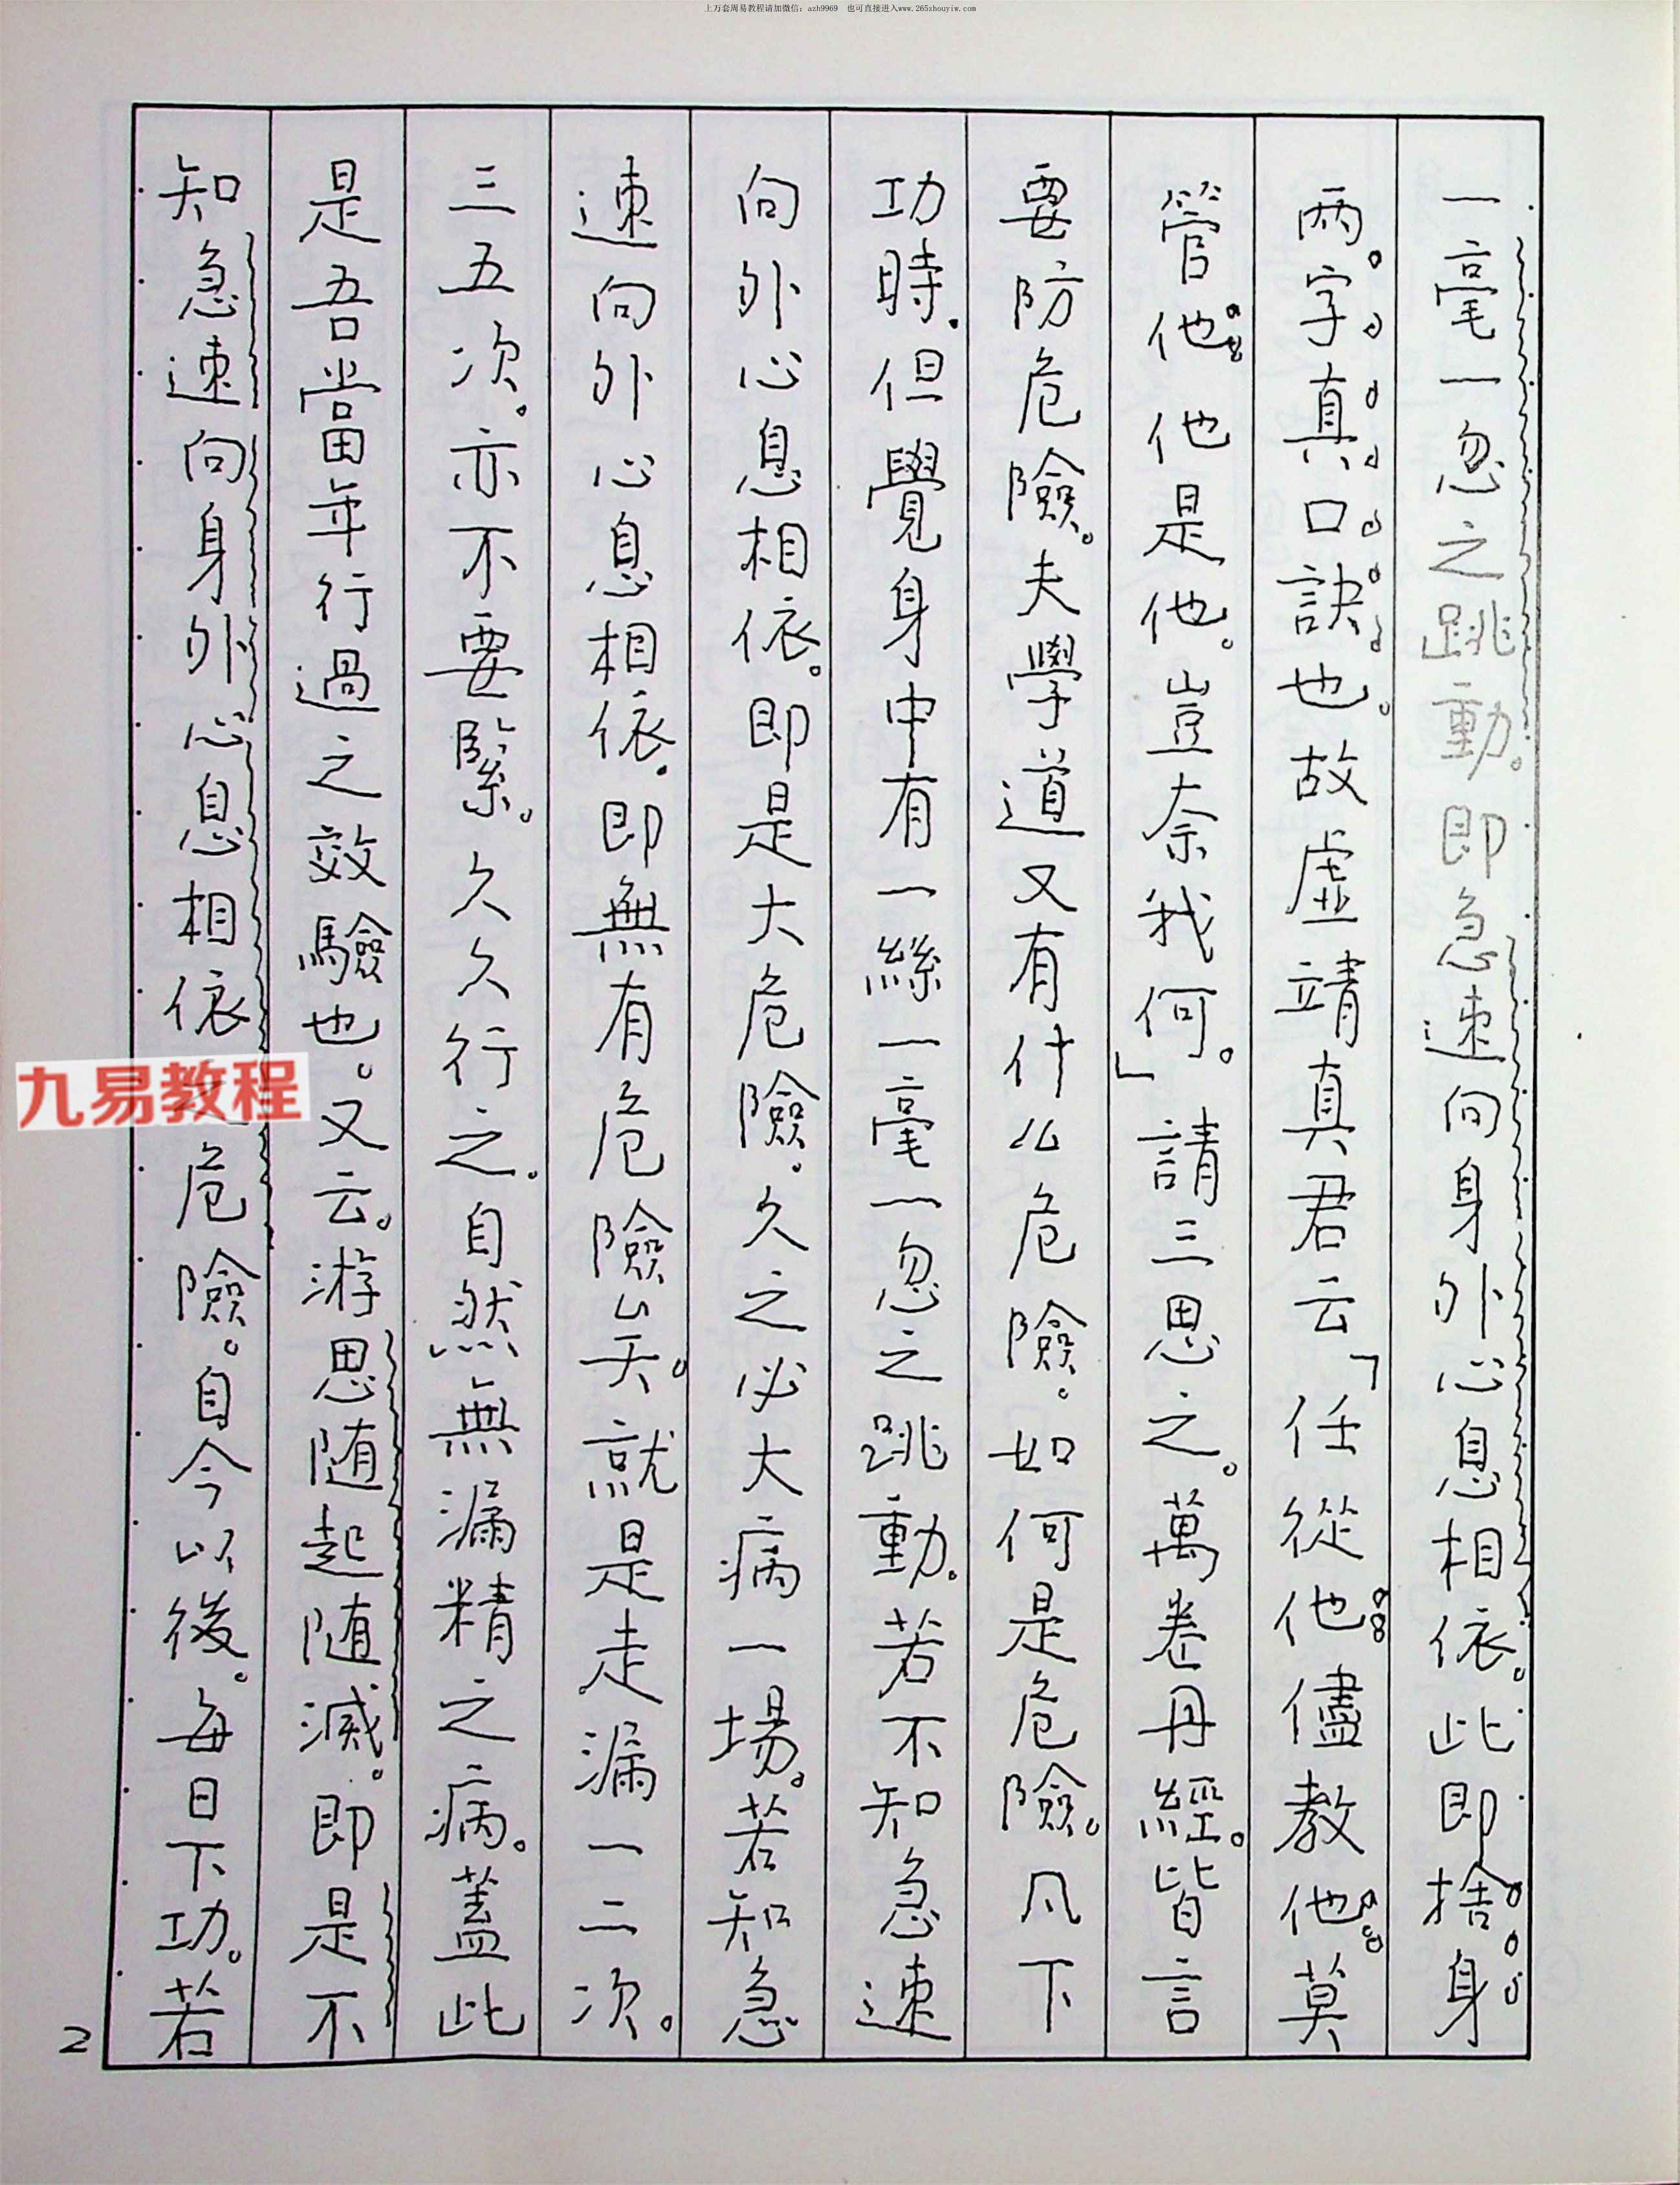 上万套周易教程请加微信：azh9969 也可直接进入www.265zhouyiw.com
一毫一忽之跳動。即急速向身外心息相依。此即捨身
兩字真口訣也。故虛靖真君云「任從他。儘教他。莫
管他。他是他。豈奈我何。」請三思之。萬卷丹經。皆言
要防危險。夫學道又有什么危險。如何是危險。凡下
功時。但覺身中有一絲一毫一忽之跳動。若不知急速
向外心息相依。即是大危險。久之必大病一場。若知急
速向外心息相依。即無有危險矣。就是走漏一二次。
三五次。亦不要緊。久久行之。自然無漏精之病。蓋此
是吾當年行過之效驗也。又云。游思随起随滅。即是不
知急速向身外心息相依之危險。自今以後。每日下功。若
九易教程
2